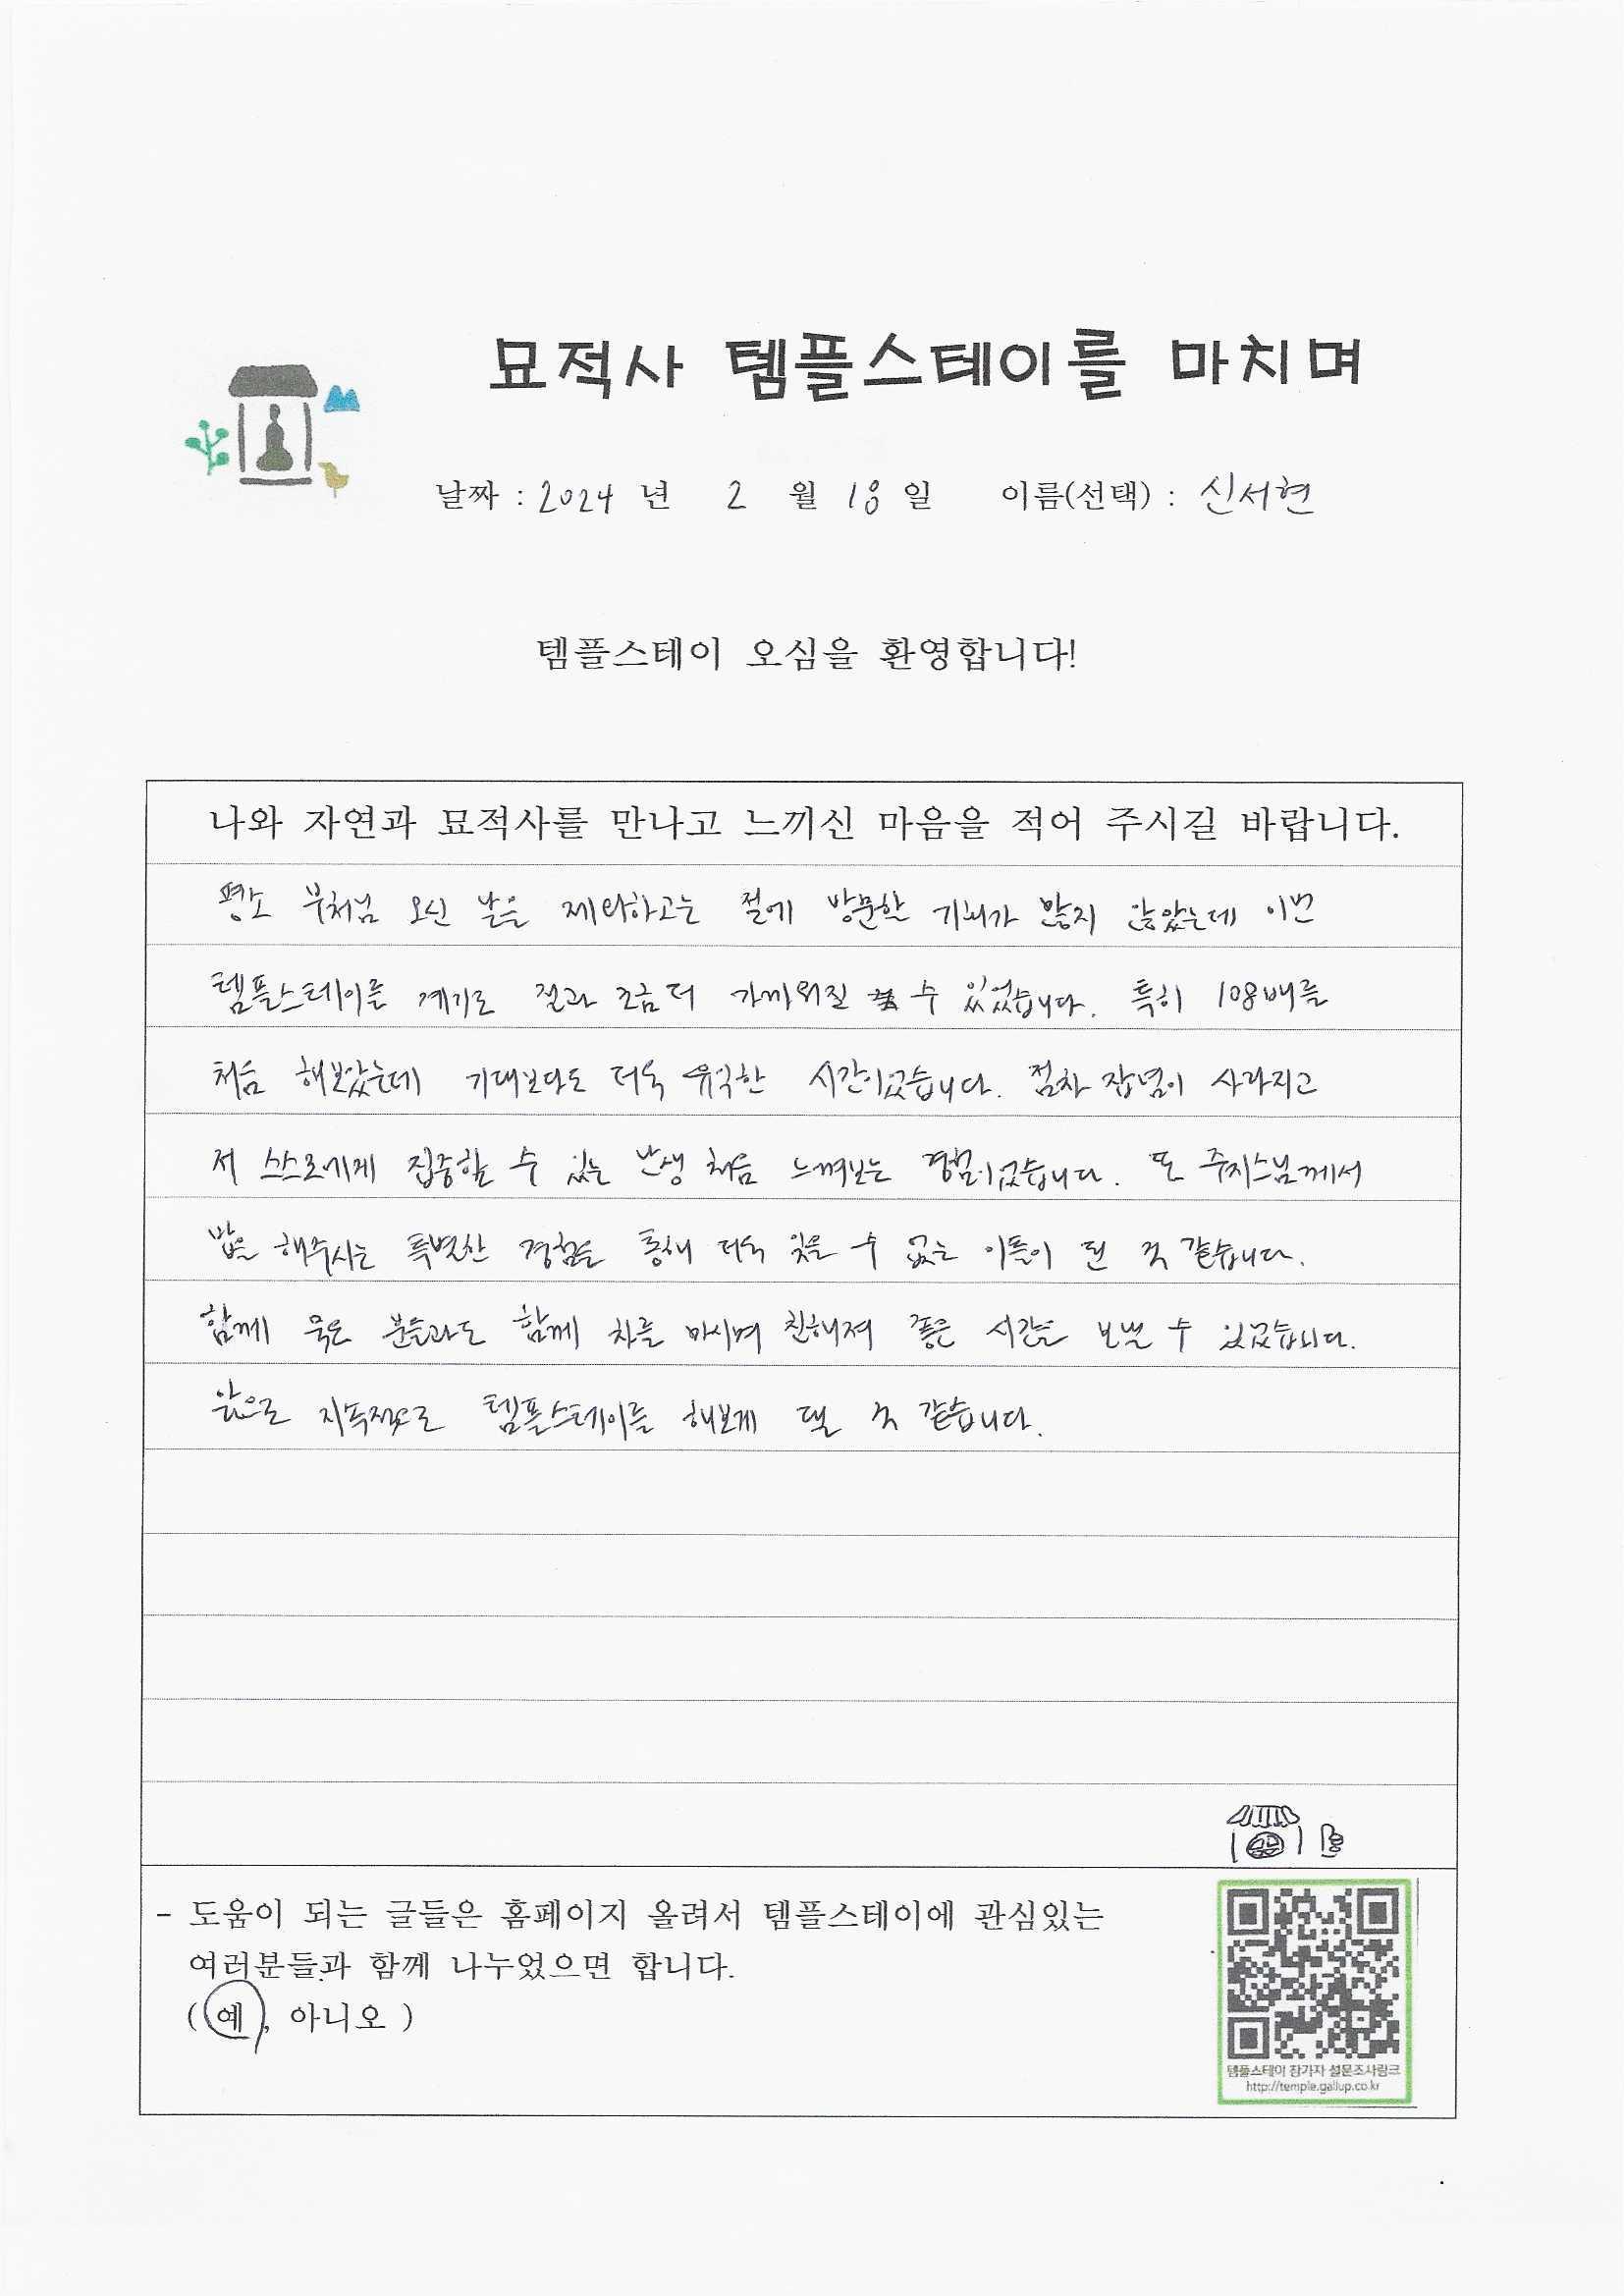 묘적사 템플스테이를 마치며
날짜 : 2024 년 2 월 18 일 이름(선택) : 신서현
템플스테이 오심을 환영합니다!
나와 자연과 묘적사를 만나고 느끼신 마음을 적어 주시길 바랍니다.
평소 부처님 오신 날을 제외하고는 절에 방문한 기회가 많지 않았는데 이번
템플스테이를 계기로 절과 조금 더 가까워질 수 있었습니다. 특히 108배를
처음 해보았는데 기대보다도 더욱 유익한 시간이었습니다. 점차 잡념이 사라지고
저 스스로에게 집중할 수 있는 난생 처음 느껴보는 경험이었습니다. 또 주지스님께서
밥을 해주시는 특별한 경험을 통해 더욱 잊을 수 없는 이틀이 된 것 같습니다.
함께 묵은 분들과도 함께 차를 마시며 친해져 좋은 시간을 보낼 수 있었습니다.
앞으로 지속적으로 템플스테이를 해보게 될 것 같습니다.
- 도움이 되는 글들은 홈페이지 올려서 템플스테이에 관심있는
여러분들과 함께 나누었으면 합니다.
( 예 , 아니오 )
템플스테이 참가자 설문조사링크
http://temple.gallup.co.kr